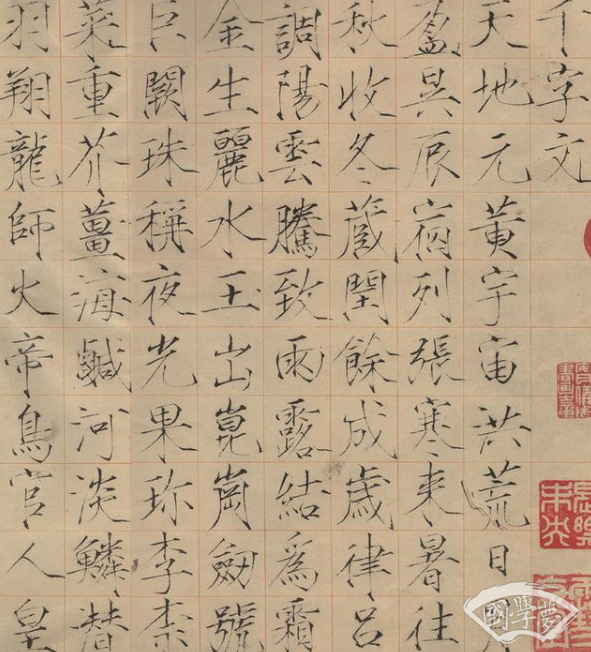 千字文
天地元黄宇宙洪荒日月
盈昃辰宿列張寒来暑往
秋收冬蔵閏餘成歳律吕
調陽雲騰致雨露結爲霜
金生麗水玉出崑崗劒號
巨闕珠稱夜光果珎李柰
菜重芥薑海鹹河淡鱗潛
羽翔龍師火帝鳥官人皇
國學夢